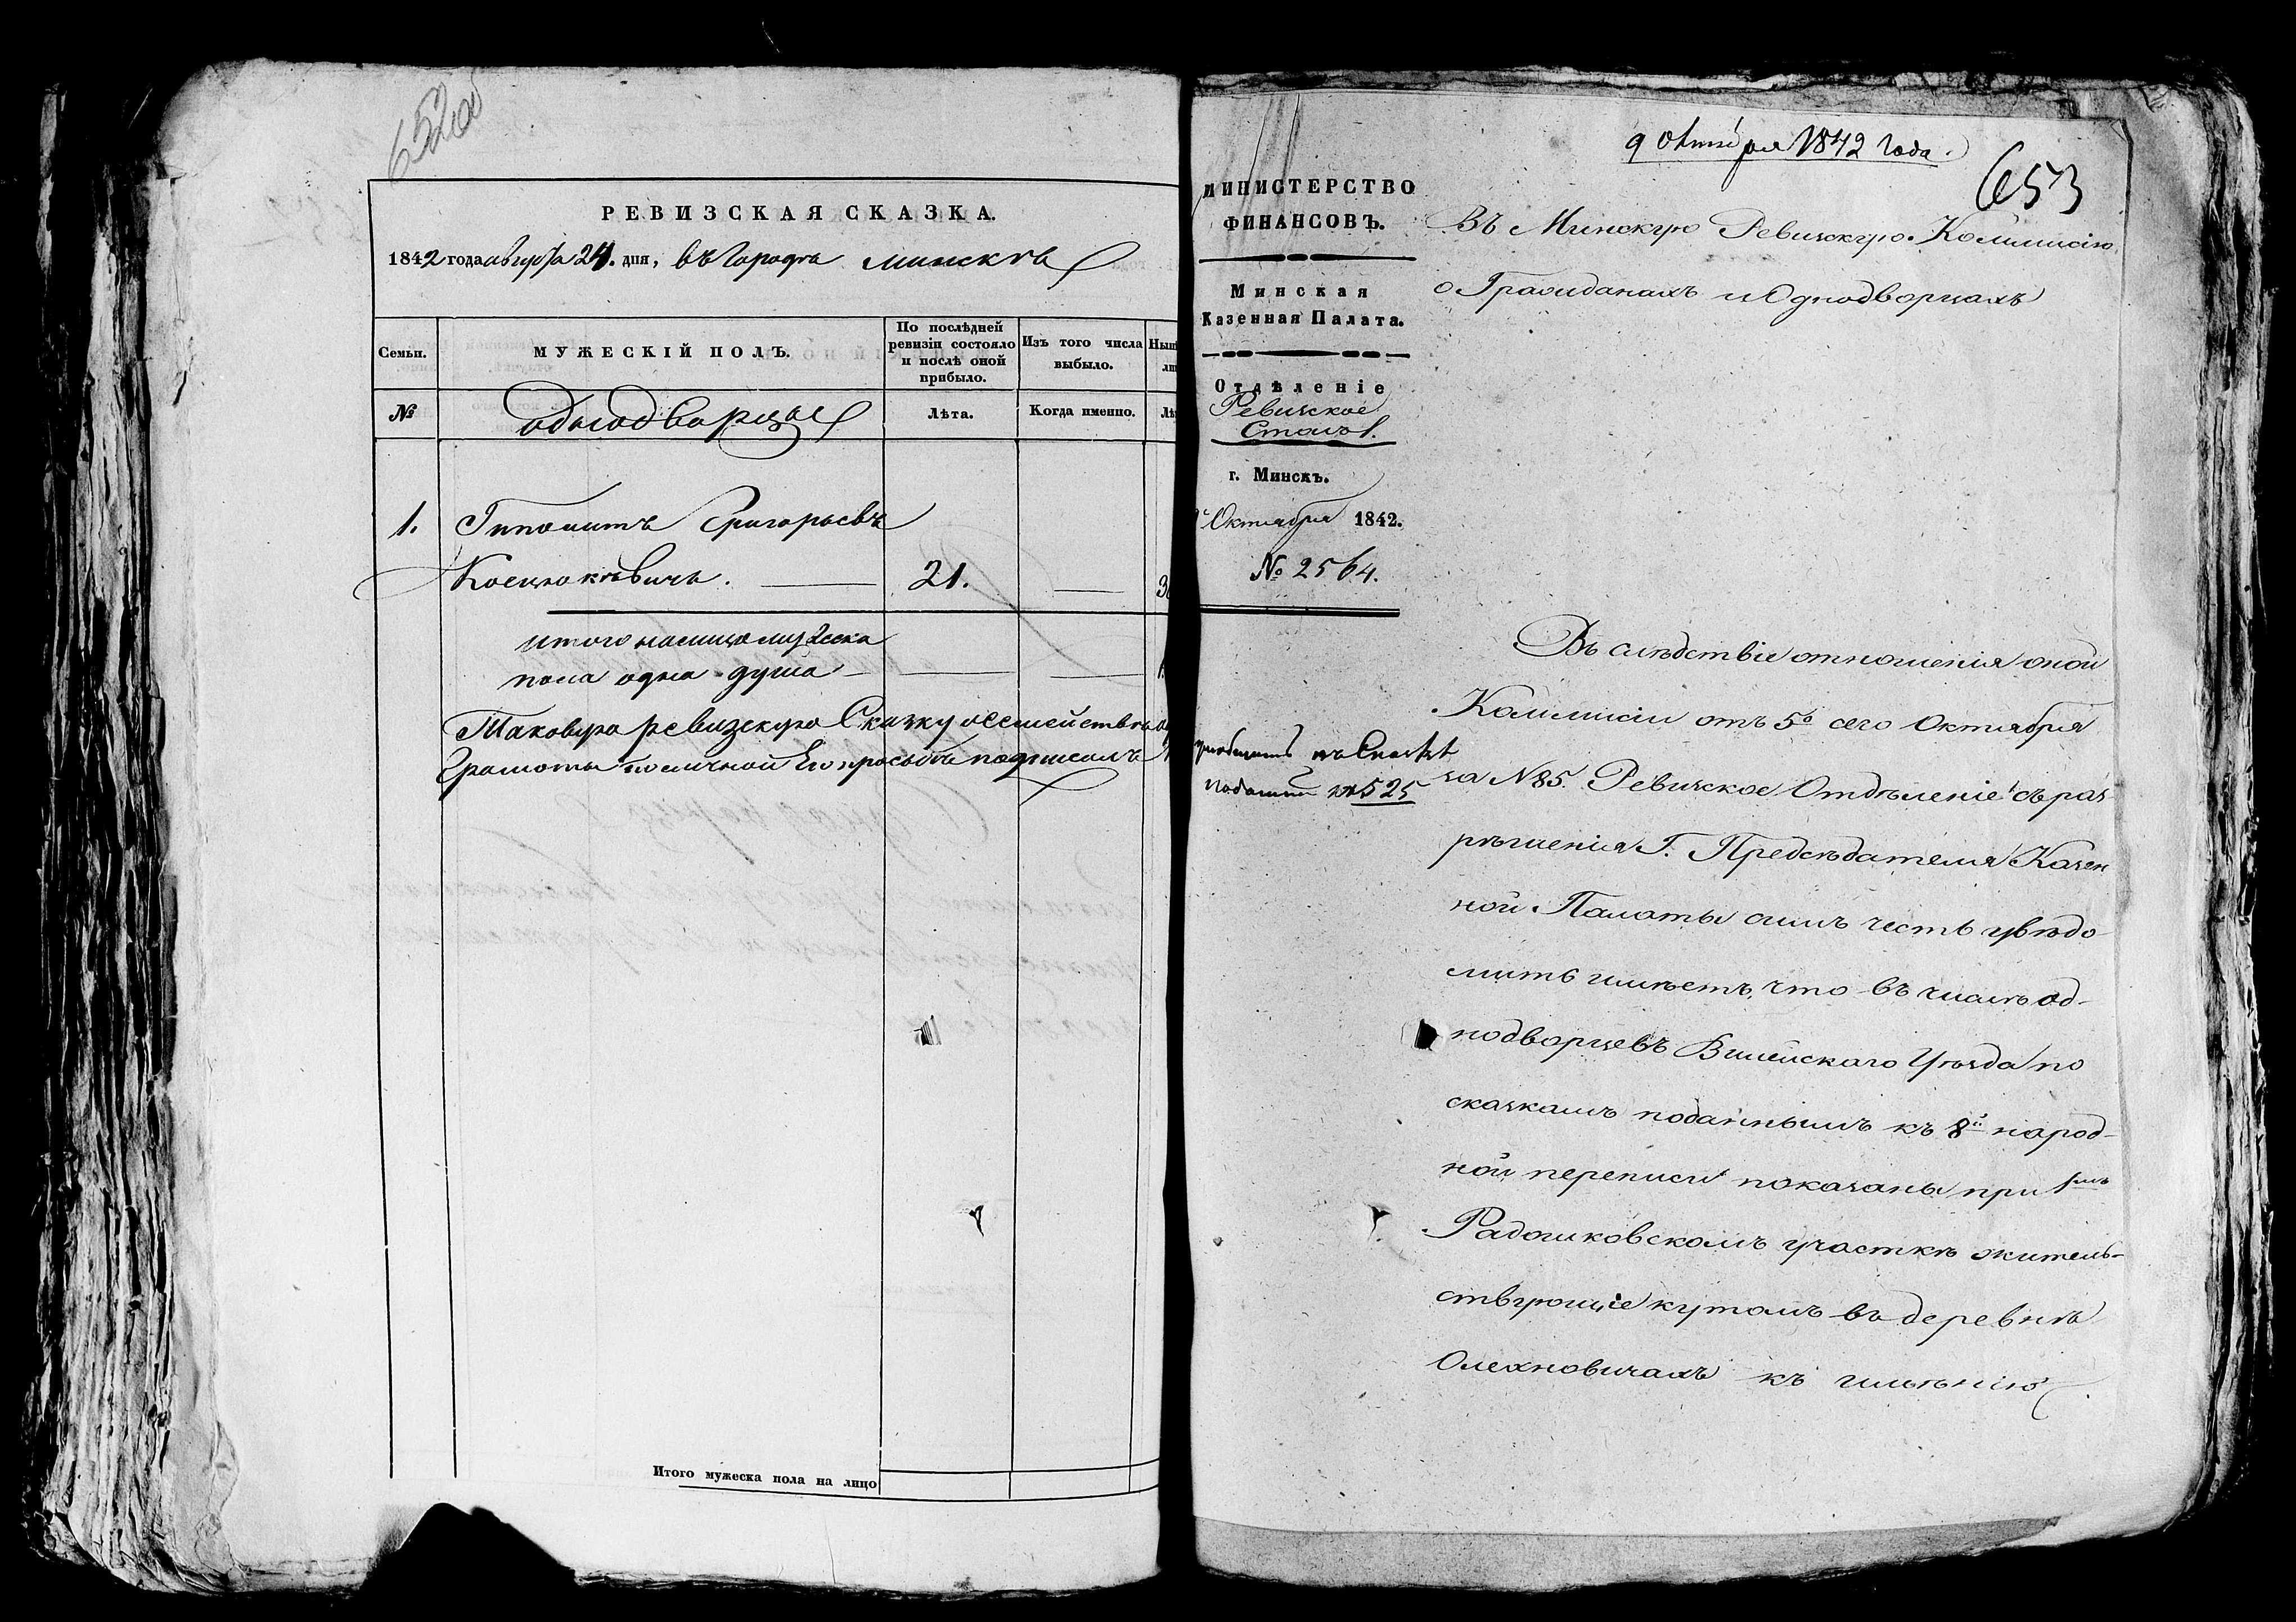 652об
РЕВИЗСКАЯ СКАЗКА.
1842 года августа 24. дня, въ городѣ Минскѣ
Семьи.
МУЖЕСКІЙ ПОЛЪ.
По послѣдней
ревизіи состояло
и послѣ оной
прибыло.
Изъ того числа
выбыло.
№
однодворцы
Лѣта.
Когда именно.
1. Гиполитъ Григорьевъ
Косцюкѣвичъ. 21.
итого налицо мужеска
пола одна душа
Таковую ревизскую Сказку о семействѣ
Грамоты по личной Его прозьбѣ подписалъ
Итого мужеска пола на лицо
9 Октября 1842 года.
653
МИНИСТЕРСТВО
ФИНАНСОВЪ.
Минская
Казенная Палата.
Отдѣленіе
Ревизское
Столъ 1.
г. Минскъ.
Октября 1842.
№ 2564.
къ Сказкѣ
525
Въ Минскую Ревизскую Коммисію
о Гражданахъ и Однодворцахъ
Въ слѣдствіе отношенія оной
Коммисіи отъ 5го сего Октября
за № 85. Ревизское Отдѣленіе съ раз-
рѣшенія Г. Предсѣдателя Казен
ной Палаты симъ честь увѣдо-
мить имѣетъ, что въ числѣ од-
нодворцевъ Вилейскаго Уѣзда по
сказкамъ поданнымъ къ 8й народ-
ной переписи показаны при 1мъ
Радошковскомъ участкѣ житель-
ствующіе кутомъ въ деревнѣ
Олехновичахъ къ имѣнію